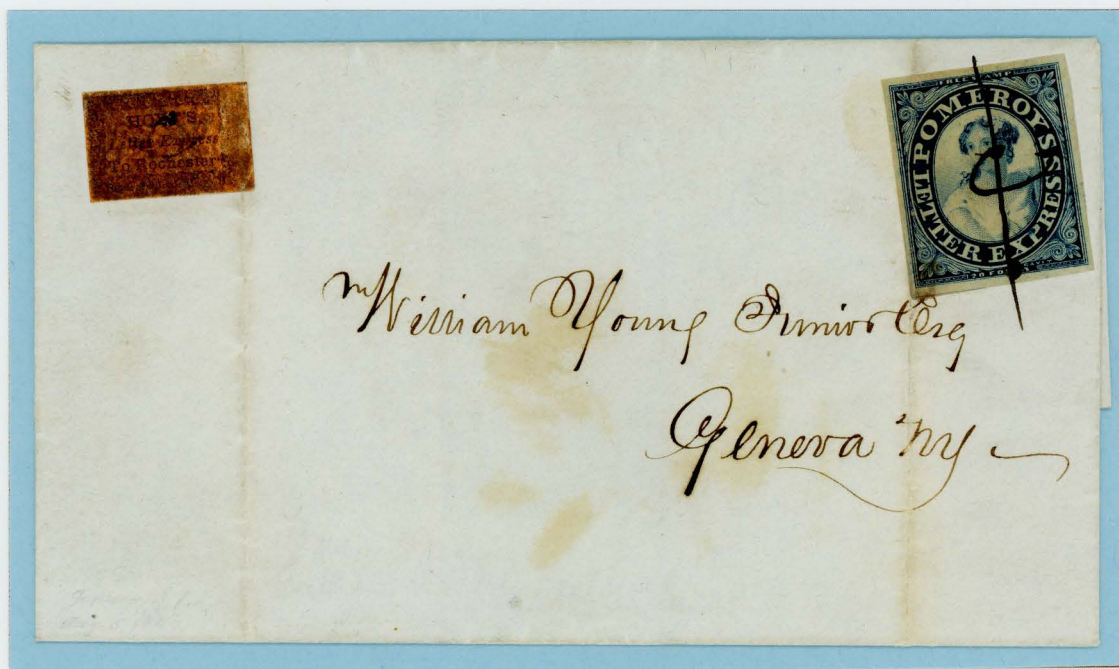 HOYT'S
Letter Express
To Rochester
FREE STAMP
POMEROY'S
LETTER EXPRESS
20 FOR $1
Mr William Young Junior Esq
Geneva NY